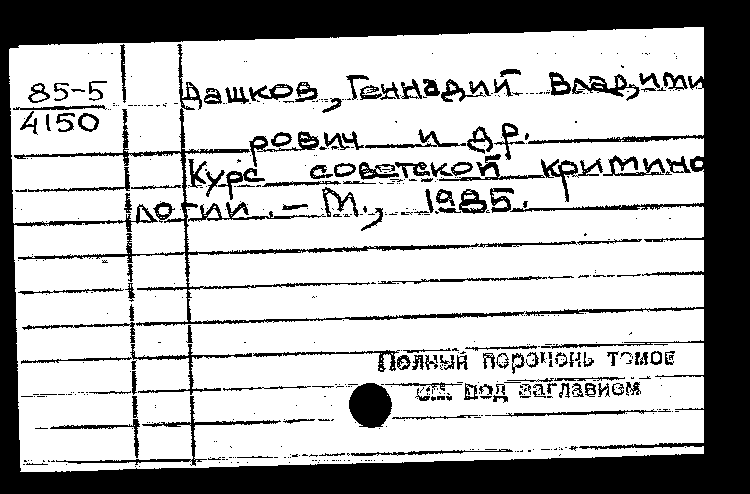 85-5
4150
Дашков, Геннадий Владими
рович и др.
Курс советской кримино
логии. – М., 1985.
Полный перечень томов
см. под заглавием